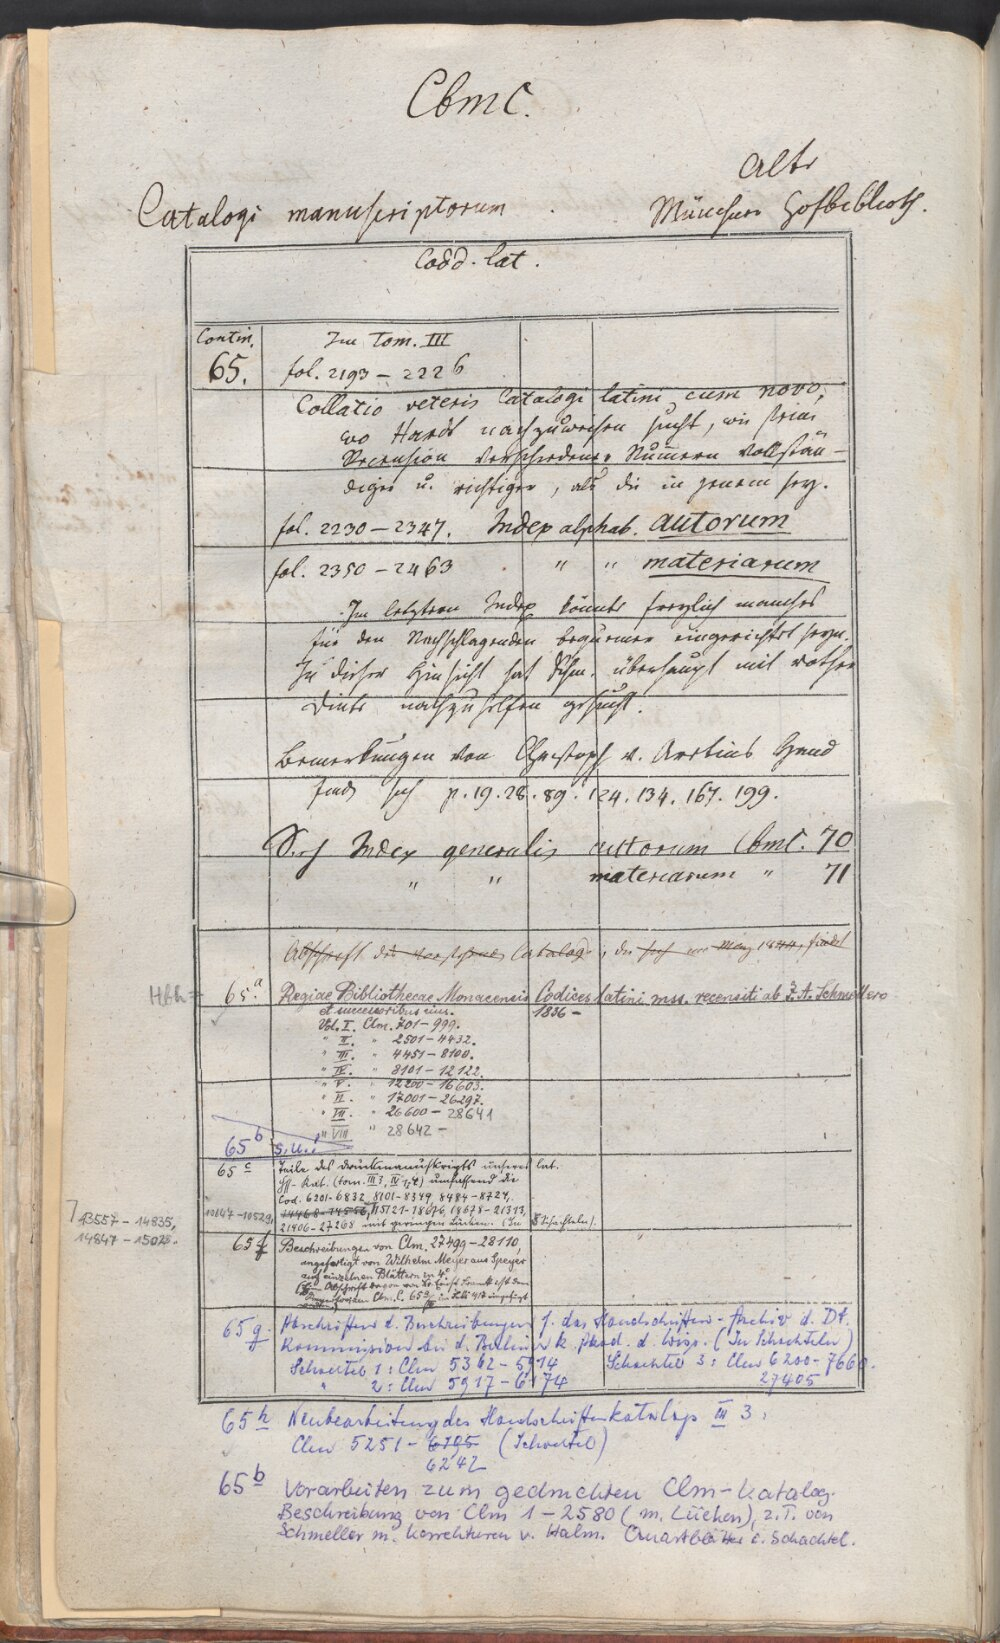 Cbm C.
Alte
Catalogi manuscriptorum. Münchner Hofbiblioth.
Codd. lat.
Contin. Im Tom. III
65. fol. 2193 – 2226
Collatio veteris Catalogi latini cum novo,
wo Hardt nachzuweisen sucht, wie seine
Recension verschiedener Nummern vollstän-
diger u. richtiger, als die in jenem sey.
fol. 2230 – 2347. Index alphab. autorum
fol. 2350 – 2463 " " materiarum
Im letztern Index könnte freylich manches
für den Nachschlagenden bequemer eingerichtet seyn.
In dieser Hinsicht hat Schm. überhaupt mit rother
Dinte nachzuhelfen gesucht.
Bemerkungen von Christoph v. Aretins Hand
finden sich p. 19. 28. 89. 124. 134. 167. 199.
Index generalis autorum Cbm C. 70
" " materiarum " 71
Abschrift des Catalogs, die sich im May 1844, findet
65.a Regiae Bibliothecae Monacensis Codices latini mss. recensiti ab J. A. Schmellero
et successoribus eius. 1836 –
Vol. I. Clm. 701 – 999.
" II. " 2501 – 4432.
" III. " 4451 – 8100.
" IV. " 8101 – 12122.
" V. " 12200 – 16603.
" VI. " 17001 – 26297.
" VII. " 26600 – 28641
" VIII " 28642 –
65 b s. u.!
65 c Teile des Druckmanuskripts unseres lat.
Hss-Kat. (tom. III 3, IV 1,4) umfassend die
Cod. 6201-6832, 8101-8349, 8484-8724,
10147-10529, 14468-14556, 15121-18676, 18678-21313,
13557 – 14835,
14847 – 15028.
21406-27268 mit geringen Lücken. (In 8 Schachteln).
65 f Beschreibungen von Clm. 27499-28110,
angefertigt von Wilhelm Meyer aus Speyer
auf einzelnen Blättern in 4°.
65 g. Abschriften d. Beschreibungen f. das Handschriften-Archiv d. Dt.
Kommission bei d. Berliner k. Akad. d. Wiss. (In Schachteln)
Schachtel 1: Clm 5362 – 5914 Schachtel 3: Clm 6200 – 7660.
" 2: Clm 5917 – 6174 27405
65 h Neubearbeitung des Handschriftenkatalogs III 3:
Clm 5251 – 6195 (Schachtel)
6242
65 b Vorarbeiten zum gedruckten Clm-Katalog.
Beschreibung von Clm 1 – 2580 (m. Lücken), z.T. von
Schmeller m. Korrekturen v. Halm. Quartblätter i. Schachtel.